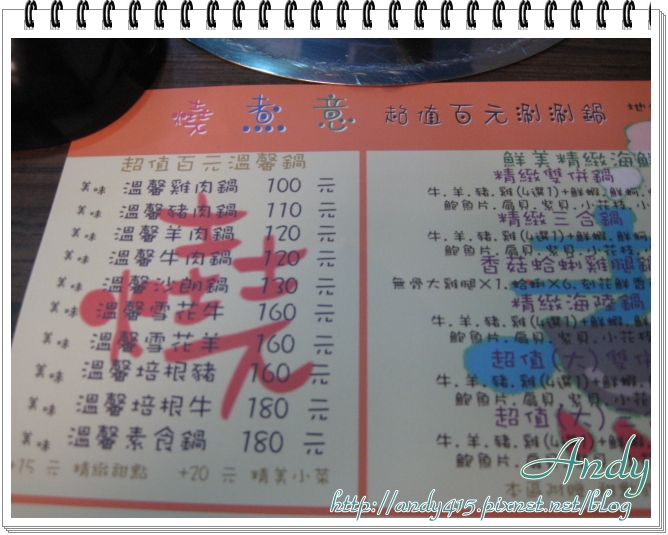 燒煮意 超值百元涮涮鍋
超值百元溫馨鍋
美味 溫馨雞肉鍋 100 元
美味 溫馨豬肉鍋 110 元
美味 溫馨羊肉鍋 120 元
美味 溫馨牛肉鍋 120 元
美味 溫馨沙朗鍋 130 元
美味 溫馨雪花牛 160 元
美味 溫馨雪花羊 160 元
美味 溫馨培根豬 160 元
美味 溫馨培根牛 180 元
美味 溫馨素食鍋 180 元
+15 元 精緻甜點 +20 元 精美小菜
鮮美精緻海鮮
精緻雙併鍋
牛.羊.豬.雞(4選1)+鮮蝦.鮮蚵
鮑魚片.扇貝.紫貝.小花枝
精緻三合鍋
牛.羊.豬.雞(4選1)+鮮蝦.鮮蚵
鮑魚片.扇貝.紫貝.小花枝
香菇蛤蜊雞腿鍋
無骨大雞腿X1.蛤蜊X6.刻花鮮香
精緻海陸鍋
牛.羊.豬.雞(4選1)+鮮蝦.鮮
鮑魚片.扇貝.紫貝.小花枝
超值(大)雙併
牛.羊.豬.雞(4選1)+鮮蝦.
鮑魚片.扇貝.紫貝.小花
超值(大)三
牛.羊.豬.雞(4選1)
鮑魚片.扇貝
Andy
http://andy415.pixnet.net/blog